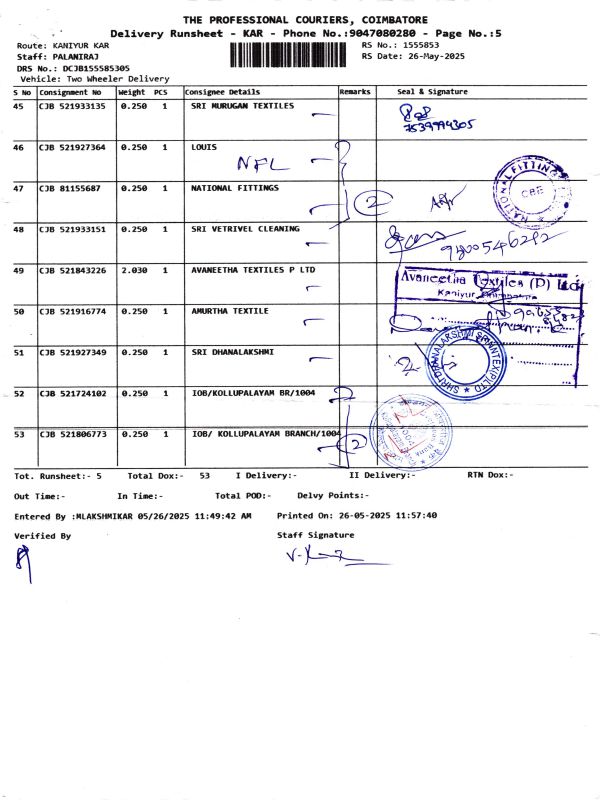 THE PROFESSIONAL COURIERS, COIMBATORE
Delivery Runsheet - KAR - Phone No.:9047080280 - Page No.:5
Route: KANIYUR KAR
RS No.: 1555853
Staff: PALANIRAJ
RS Date: 26-May-2025
DRS No.: DCJB155585305
Vehicle: Two Wheeler Delivery
S No Consignment No Weight PCS Consignee Details Remarks Seal & Signature
45 CJB 521933135 0.250 1 SRI MURUGAN TEXTILES
7539994305
46 CJB 521927364 0.250 1 LOUIS
NFL
47 CJB 81155687 0.250 1 NATIONAL FITTINGS
2
NATIONAL FITTINGS
CBE
48 CJB 521933151 0.250 1 SRI VETRIVEL CLEANING
9800546292
49 CJB 521843226 2.030 1 AVANEETHA TEXTILES P LTD
Avaneetha Textiles (P) Ltd
Kaniyur, Coimbatore
50 CJB 521916774 0.250 1 AMURTHA TEXTILE
51 CJB 521927349 0.250 1 SRI DHANALAKSHMI
52 CJB 521724102 0.250 1 IOB/KOLLUPALAYAM BR/1004
53 CJB 521806773 0.250 1 IOB/ KOLLUPALAYAM BRANCH/1004
2
Tot. Runsheet:- 5 Total Dox:- 53 I Delivery:- II Delivery:- RTN Dox:-
Out Time:- In Time:- Total POD:- Delvy Points:-
Entered By :MLAKSHMIKAR 05/26/2025 11:49:42 AM Printed On: 26-05-2025 11:57:40
Verified By Staff Signature